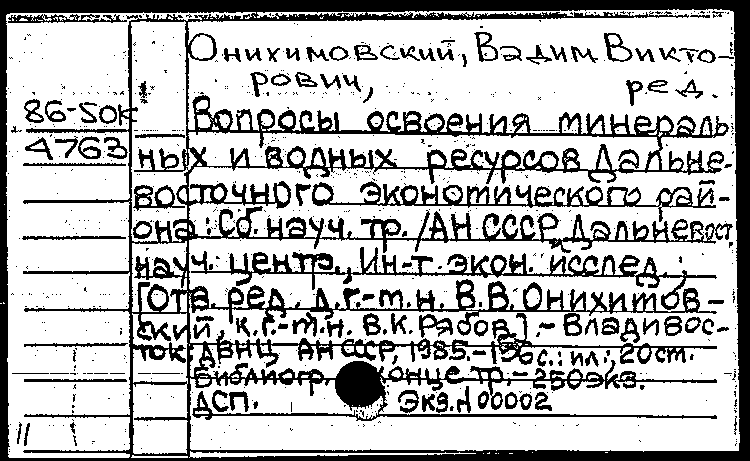 Онихимовский, Вадим Викто-
рович, ред.
86-50к
4763
Вопросы освоения минераль
ных и водных ресурсов Дальне-
восточного экономического рай-
она: Сб. науч. тр. / АН СССР, Дальневост.
науч. центр., Ин-т экон. исслед.;
[Отв. ред. д.г.-м.н. В.В. Онихимов-
ский, к.г.-м.н. В.К. Рябов]. - Владивос-
ток: ДВНЦ АН СССР, 1985. - 156 с.: ил.; 20 см.
Библиогр. конце тр. - 250 экз.
ДСП. Экз. N 00002